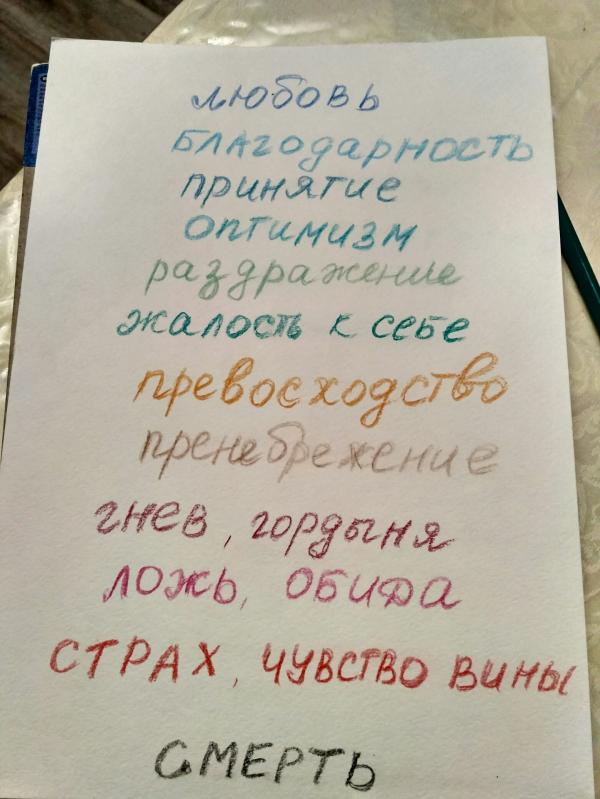 любовь
БЛАгодарность
принятие
оптимизм
раздражение
жалость к себе
превосходство
пренебрежение
гнев, гордыня
ложь, обида
СТРАХ, ЧУВСТВО ВИНЫ
СМЕРТЬ